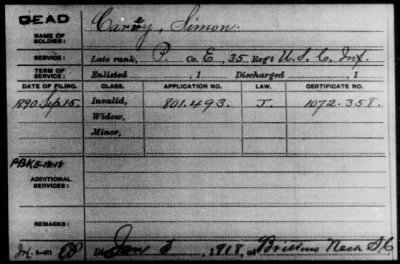 DEAD
Carey, Simon.
NAME OF SOLDIER:
SERVICE: Late rank, P. Co. E, 35 Reg't U. S. C. Inf.
TERM OF SERVICE: Enlisted , 1 Discharged , 1
DATE OF FILING. CLASS. APPLICATION NO. LAW. CERTIFICATE NO.
1890 Sep. 15. Invalid, 801.493. J. 1072.358.
Widow,
Minor,
ADDITIONAL SERVICES:
REMARKS:
Died Jan 5, 1918, at Brittons Neck SC